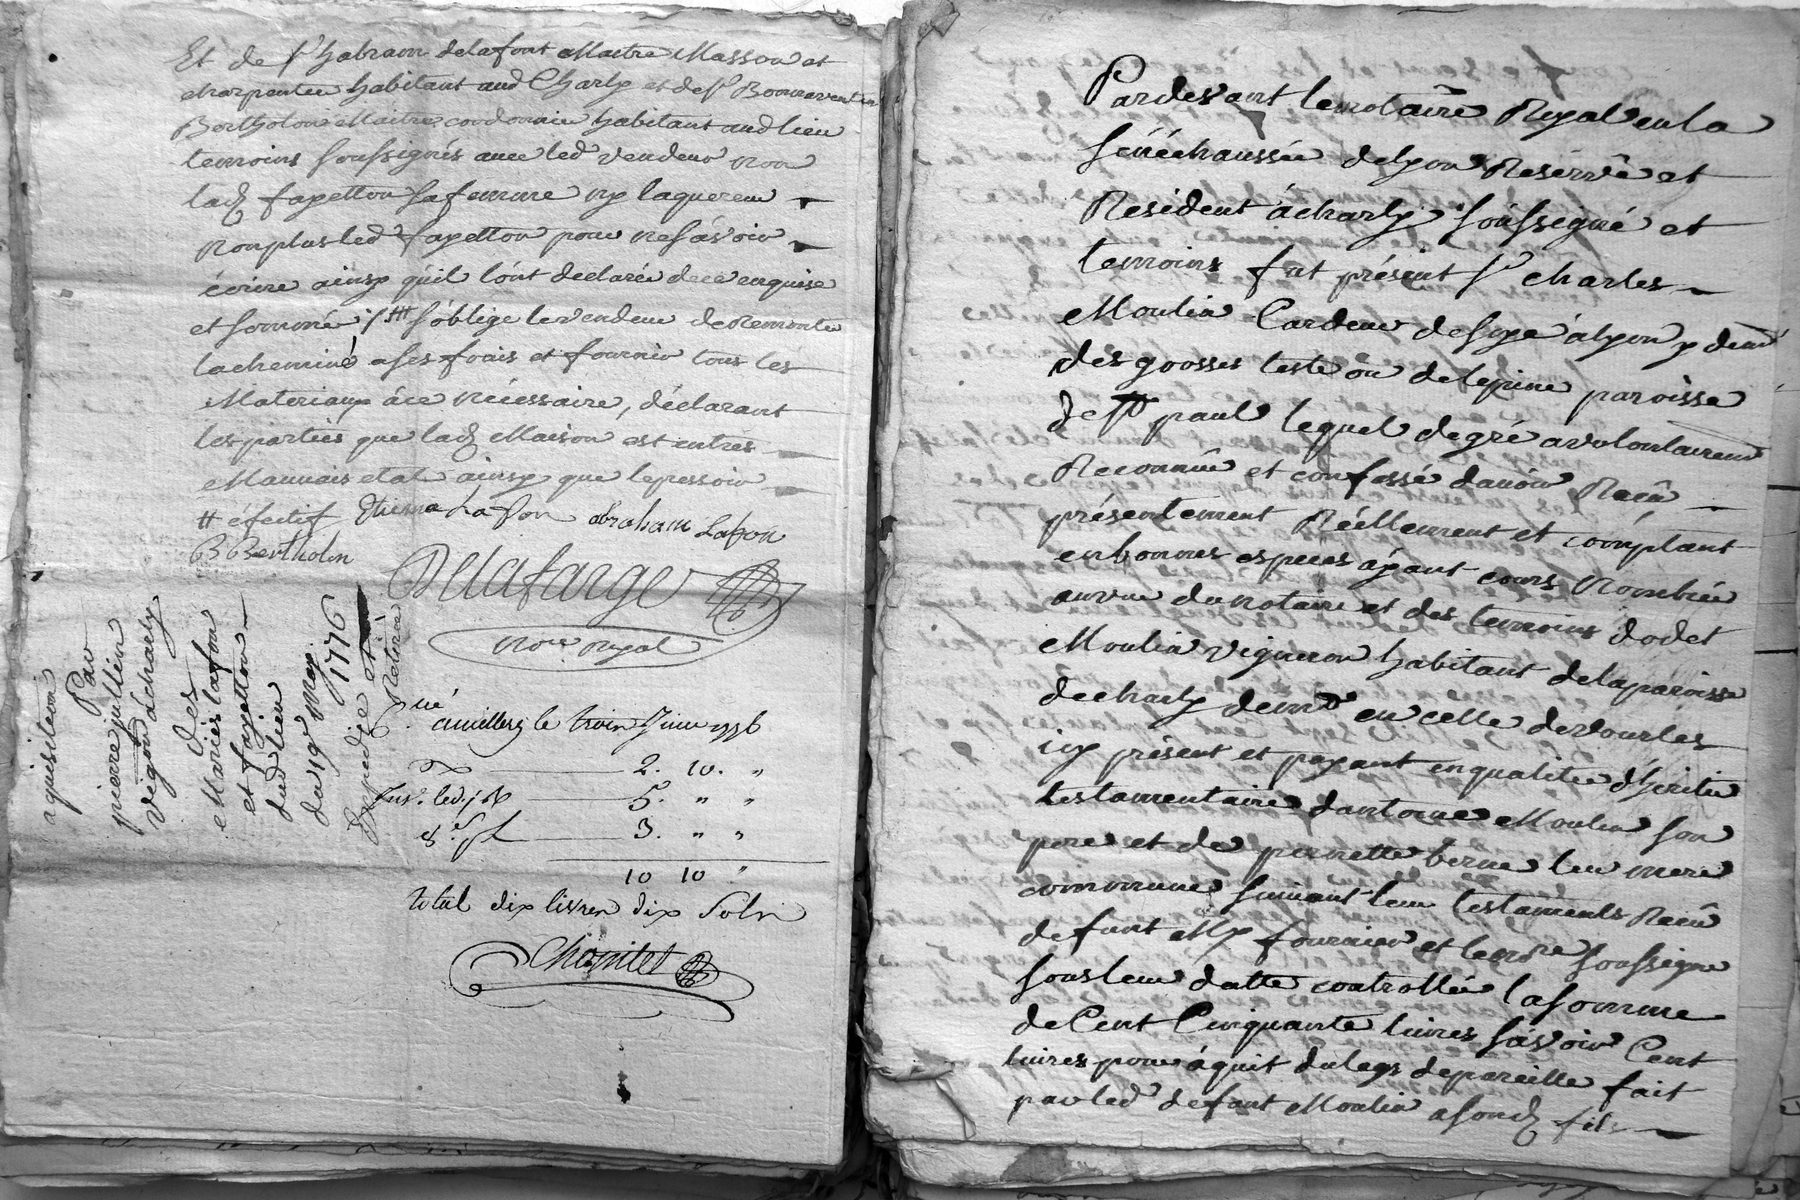 Et de Sr habram delafont Maitre Masson et
charpentier habitant aud Charly et de Sr Bonnaventure
Bertholon Maitre cordonnier habitant aud lieu
temoins soussignés avec led vendeur non
lad fayetton sa femme ny laquereur
non plus led fayetton pour ne sávoir
écrire ainsy qu'il lónt declaréz de ce enquise
et sommé s'óblige le vendeur de Remonter
la cheminé a ses frais et fournir tous les
Materiaux áce nécessaire, déclarant
les parties que lad Maison est en trés
Mauvais etat ainsy que le pessoir
# éfectif Etienne Lafon abraham Lafon
B Bertholon
Delafarge
Nore Royal
aquisition
Par
pierre jullien
vigon á charly
des
Mariés lafon
et fayetton
dud lieu
du 19e May
1776
Expedié et
Retiré
C.ué a millery le trois Juin 1776
2. 10. "
5. " "
3. " "
10 10 "
total dix livres dix Sols
Chapitel
Pardevant le notaire Royal en la
sénéchaussée de lyon Réservé et
Resident á charly soussigné et
temoins fut présent Sr charles
Moulin Cardeur de soye á lyon y demt
des grosses teste ou de lepine paroisse
de St paul lequel de gré a volontairemt
Reconnû et confessé dávoir Recû
présentement Réellement et cómptant
en bonnes especes áyant cours Nombrée
au vue du notaire et des temoins dodet
Moulin vigneron habitant de la paroisse
de charly demt en celle de vourles
icy présent et payant en qualitée d'héritier
testamentaire dantoine Moulin son
pere et de pernette berne leur mere
commune suivant leur testaments Recû
defunt Me fournier et le nore soussigne
sous leur datte controllée la somme
de Cent Cinquante livres sávoir Cent
livres pour áquit du legs de pareille fait
par led defunt Moulin a sond fils